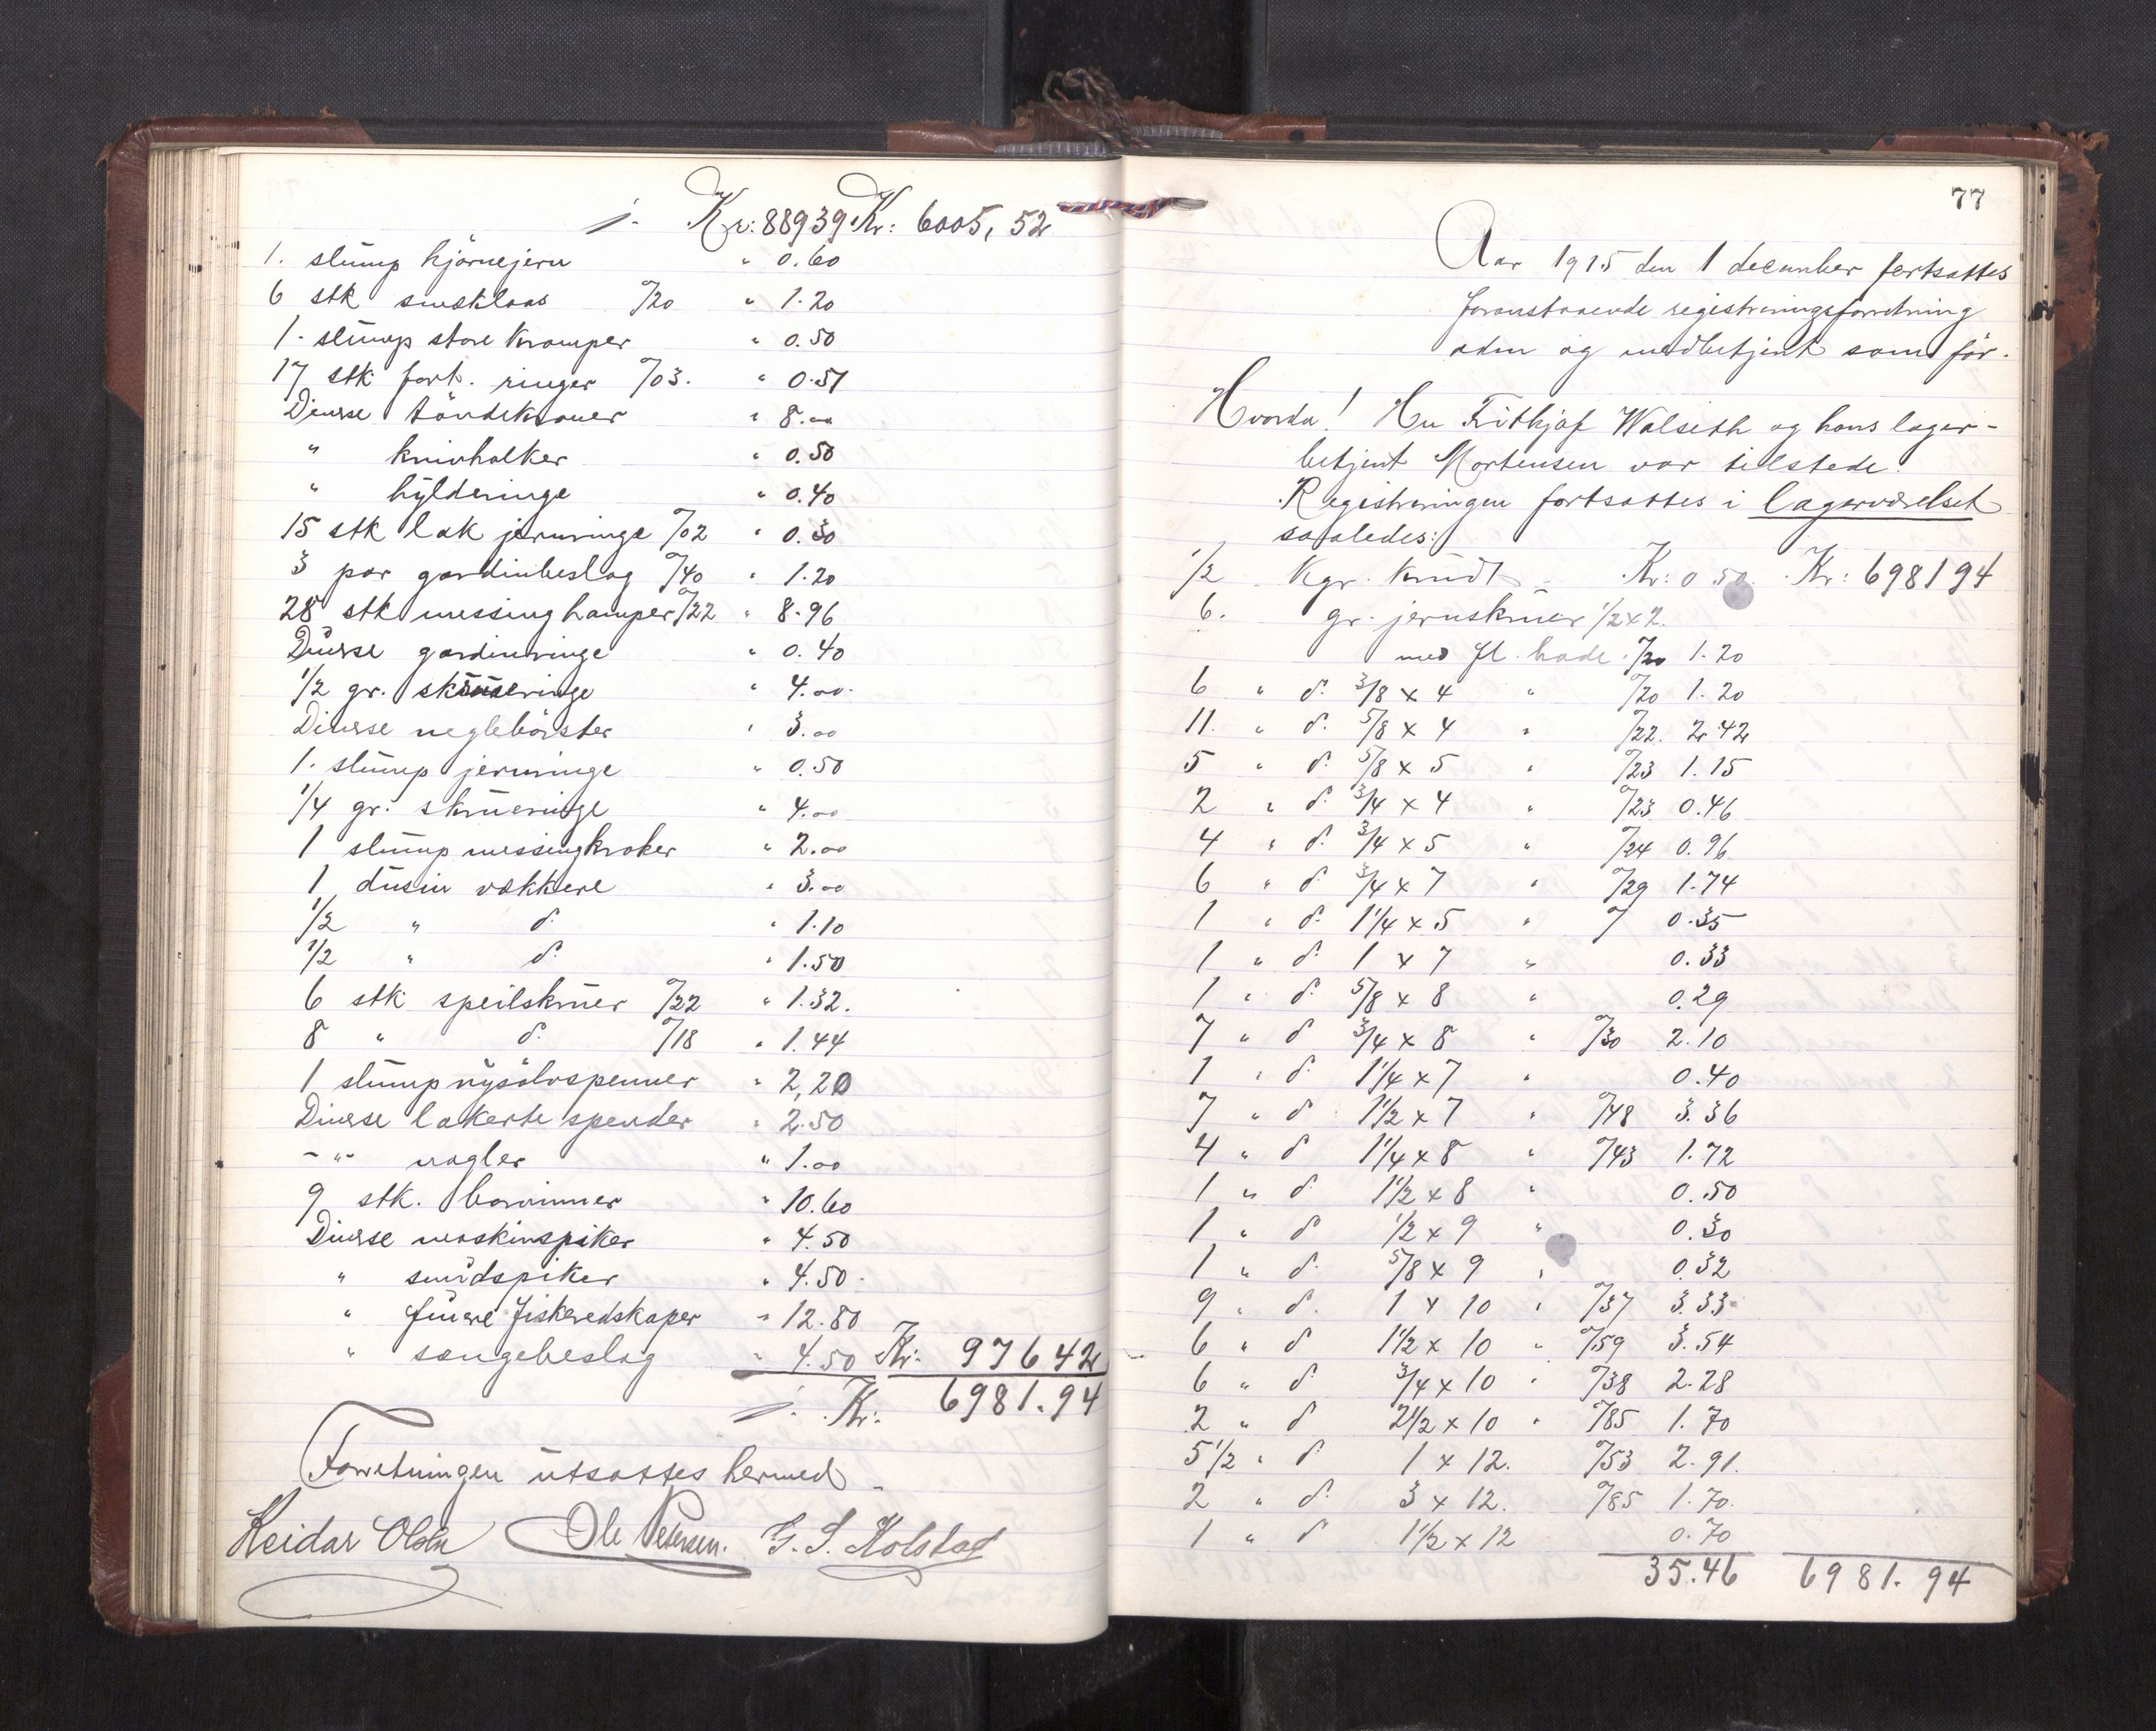 i. Kr: 889 39 Kr: 6005, 52
1. slump hjørnejern " 0.60
6 stk smeklaas º/20 " 1.20
1. slump store kramper " 0.50
17 stk fort. ringer º/03. " 0.51
Diverse töndekraner " 8.00
" knivholker " 0.50
" hylderinge " 0.40
15 stk lak jernringe º/02 " 0.30
3 par gardinbeslag º/40 " 1.20
28 stk messing hamper º/22 " 8.96
Diverse gardinringe " 0.40
1/2 gr. skrueringe " 4.00
Diverse neglebörster " 3.00
1. slump jernringe " 0.50
1/4 gr. skrueringe " 4.00
1 slump messingkroker " 2.00
1 dusin vækkere " 3.00
1/2 " d. " 1.10
1/2 " d. " 1.50
6 stk speilskruer º/22 " 1.32.
8 " d. º/18 " 1.44
1 slump nysölvspenner " 2,20
Diverse lakerte spender " 2.50
-"- nagler " 1.00
9 stk. borvinner " 10.60
Diverse maskinspiker " 4.50
" smidspiker " 4.50
" finere fiskeredskaper " 12.80
" sengebeslag " 4.50 Kr: 976 42
i. Kr: 6981.94
Forretningen utsattes hermed.
Reidar Olsen Ole Petersen. G. S. Kolstad
77
Aar 1915 den 1 december fortsattes
foranstaaende registreringsforretning
aden og medbetjent som för.
Hvorda! Hr Frithjof Walseth og hans lager-
betjent Mortensen var tilstede.
Registreringen fortsattes i lagerværelset
saaledes:
1/2 Kgr. knudt Kr: 0.50. Kr: 6981 94
6. gr. jernskruer 1/2 x 2.
med fl. hode º/20 1.20
6 " d. 3/8 x 4 " º/20 1.20
11. " d. 5/8 x 4 " º/22. 2.42
5 " d. 5/8 x 5 " º/23 1.15
2 " d. 3/4 x 4 " º/23 0.46
4 " d. 3/4 x 5 " º/24 0.96
6 " d. 3/4 x 7 " º/29 1.74
1 " d. 1 1/4 x 5 " º/ 0.35
1 " d. 1 x 7 " 0.33
1 " d. 5/8 x 8 " 0.29
7 " d 3/4 x 8 " º/30 2.10
1 " d. 1 1/4 x 7 " 0.40
7 " d 1 1/2 x 7 " º/48 3.36
4 " d 1 1/4 x 8 " º/43 1.72
1 " d 1 1/2 x 8 " 0.50
1 " d 1/2 x 9 " 0.30
1 " d. 5/8 x 9 " 0.32
9 " d. 1 x 10 " º/37 3.33
6 " d 1 1/2 x 10 " º/59 3.54
6 " d 3/4 x 10 " º/38 2.28
2 " d 2 1/2 x 10 " º/85 1.70
5 1/2 " d. 1 x 12. º/53 2.91.
2 " d. 3 x 12. º/85 1.70.
1 " d 1 1/2 x 12 0.70
35.46 6981.94